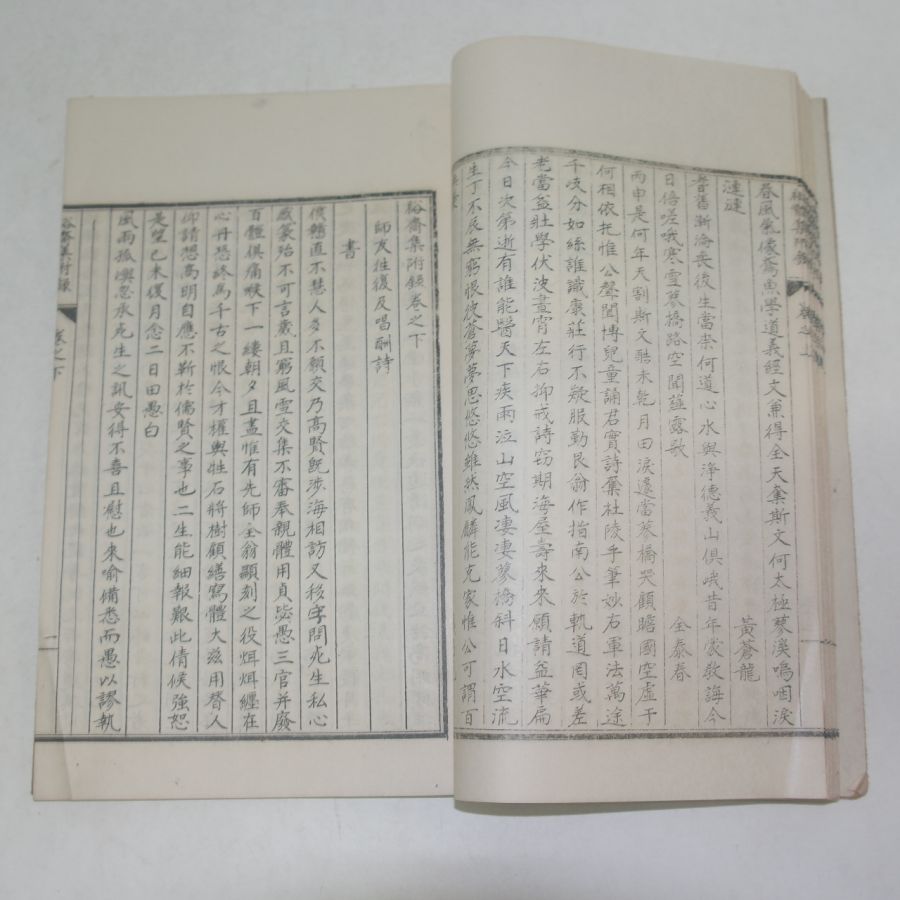 裕齋集附錄 卷之上
春風氣像爲魚學道義經文兼得全天棄斯文何太極蓼溪嗚咽淚
漣漣 黃蒼龍
耆舊漸淪喪後生當柰何道心水與淨德義山俱峨昔年蒙敎誨今
日倍嗟哦寒雪蓼橋路空聞薤露歌 全泰春
丙申是何年天割斯文酷未乾月田淚遽當蓼橋哭顧瞻國空虛于
何相依托惟公聲聞博兒童誦君實詩葉杜陵手筆妙右軍法萬途
千歧分如絲誰識康莊行不疑服勤艮翁作指南公於軌道罔或差
老當益壯學伏波晝宵左右抑戒詩窃期海屋壽來來願請益華扁
今日次第逝有誰能醫天下疾雨泣山空風凄凄蓼橋斜日水空流
生丁不辰無窮恨彼蒼夢夢思悠悠雖然鳳麟能克家惟公可謂百
裕齋集附錄卷之下
師友往復及唱酬詩
書
僕戇直不慧人多不顧交乃高賢旣涉海相訪又移字問兆生私心
感篆殆不可言歲且窮風雪交集不審奉親體用貞毖愚三官幷廢
百體俱痛喉下一縷朝夕且盡惟有先師全翁顯刻之役烱烱纏在
心丹恐終爲千古之恨今才權輿牲石將樹顧繕寫體大玆用替人
仰請想高明自應不靳於儒賢之事也二生能細報艱此倩候強恕
是望己未復月念二日田愚白
風雨孤燠忽承兆生之訊安得不喜且慰也來喻備悉而愚以謬執
裕齋集附錄 卷之下 二